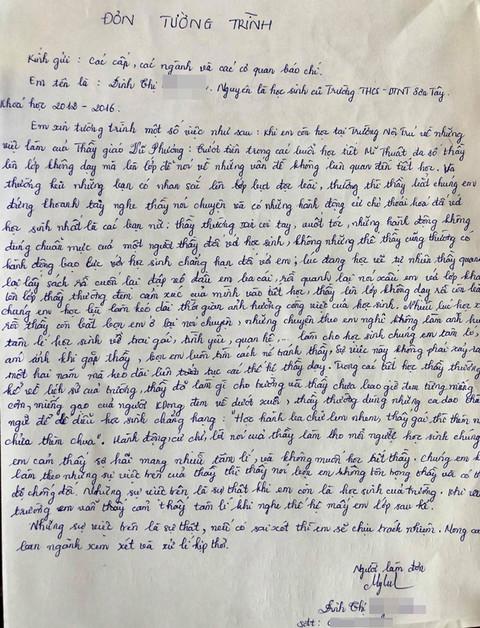 ĐƠN TƯỜNG TRÌNH
Kính gửi: Các cấp, các ngành và các cơ quan báo chí.
Em tên là: Đinh Thị . Nguyên là học sinh cũ Trường THCS-DTNT Sơn Tây.
Khoá học 2012 - 2016.
Em xin tường trình một số việc như sau: khi em còn học tại Trường Nội Trú về những
việc làm của Thầy giáo Vũ Phương: trước tiên trong các buổi học tiết Mĩ Thuật đa số thầy
lên lớp không dạy mà lên lớp để nói về những vấn đề không liên quan đến tiết học. Và
thường kêu những bạn có nhan sắc lên bục đọc bài, thường thì thầy bắt chúng em
đứng khoanh tay nghe thầy nói chuyện và có những hành động cử chỉ thoái hoá đối với
học sinh nhất là các bạn nữ: thầy thường sờ tay, vuốt tóc, những hành động không
đúng chuẩn mực của một người thầy đối với học sinh, không những thế thầy cũng thường có
hành động bạo lực với học sinh chẳng hạn đối với em; lúc đang học vở tự nhiên thầy quay
lại lấy sách rồi cuốn lại đập vô đầu em ba cái, rồi quay lại nói xấu em với lớp khác
lên lớp thầy thường đem cảm xúc của mình vào tiết học, thầy lên lớp không dạy rồi còn bắt
chúng em học bù làm kéo dài thời gian ảnh hưởng công việc của học sinh. Nhiều lúc học xong
rồi thầy còn bắt bọn em ở lại nói chuyện, những chuyện theo em nghĩ không lành ảnh hưởng
tâm lí học sinh về trai gái, tình yêu, quan hệ,... làm cho học sinh chúng em lo,
ám ảnh khi gặp thầy, bọn em luôn tìm cách né tránh thầy, sự việc này không phải xảy ra
một hai năm mà kéo dài liên tục các thế hệ thầy dạy. Trong các tiết học thầy thường
kể về lịch sử của trường, thầy đã làm gì cho trường và thầy chưa bao giờ đem từng miếng
cơm, miếng gạo của người KDong đem về dưới xuôi, thầy thường dùng những ca dao
ngữ để đe dọa học sinh chẳng hạng: "Học hành ba chữ lem nhem, thấy gái thì thèm như
chửa thèm chua". Hành động cử chỉ, lời nói của thầy làm cho mỗi người học sinh chúng
em cảm thấy sợ hãi mang nhiều tâm lí, và không muốn học tiết thầy. Chúng em không
làm theo những sự việc trên của thầy thì thầy nói bọn em không tôn trọng thầy và có thái
độ chống đối. Những sự việc trên là sự thật khi em còn là học sinh của trường. khi
trường em vẫn thấy tâm lí khi nghe thế hệ mấy em lớp sau kể.
Những sự việc trên là sự thật, nếu có sai xót thì em sẽ chịu trách nhiệm. Mong các
ban ngành xem xét và xử lí kịp thời.
Người làm đơn
Đinh Thị
sdt: